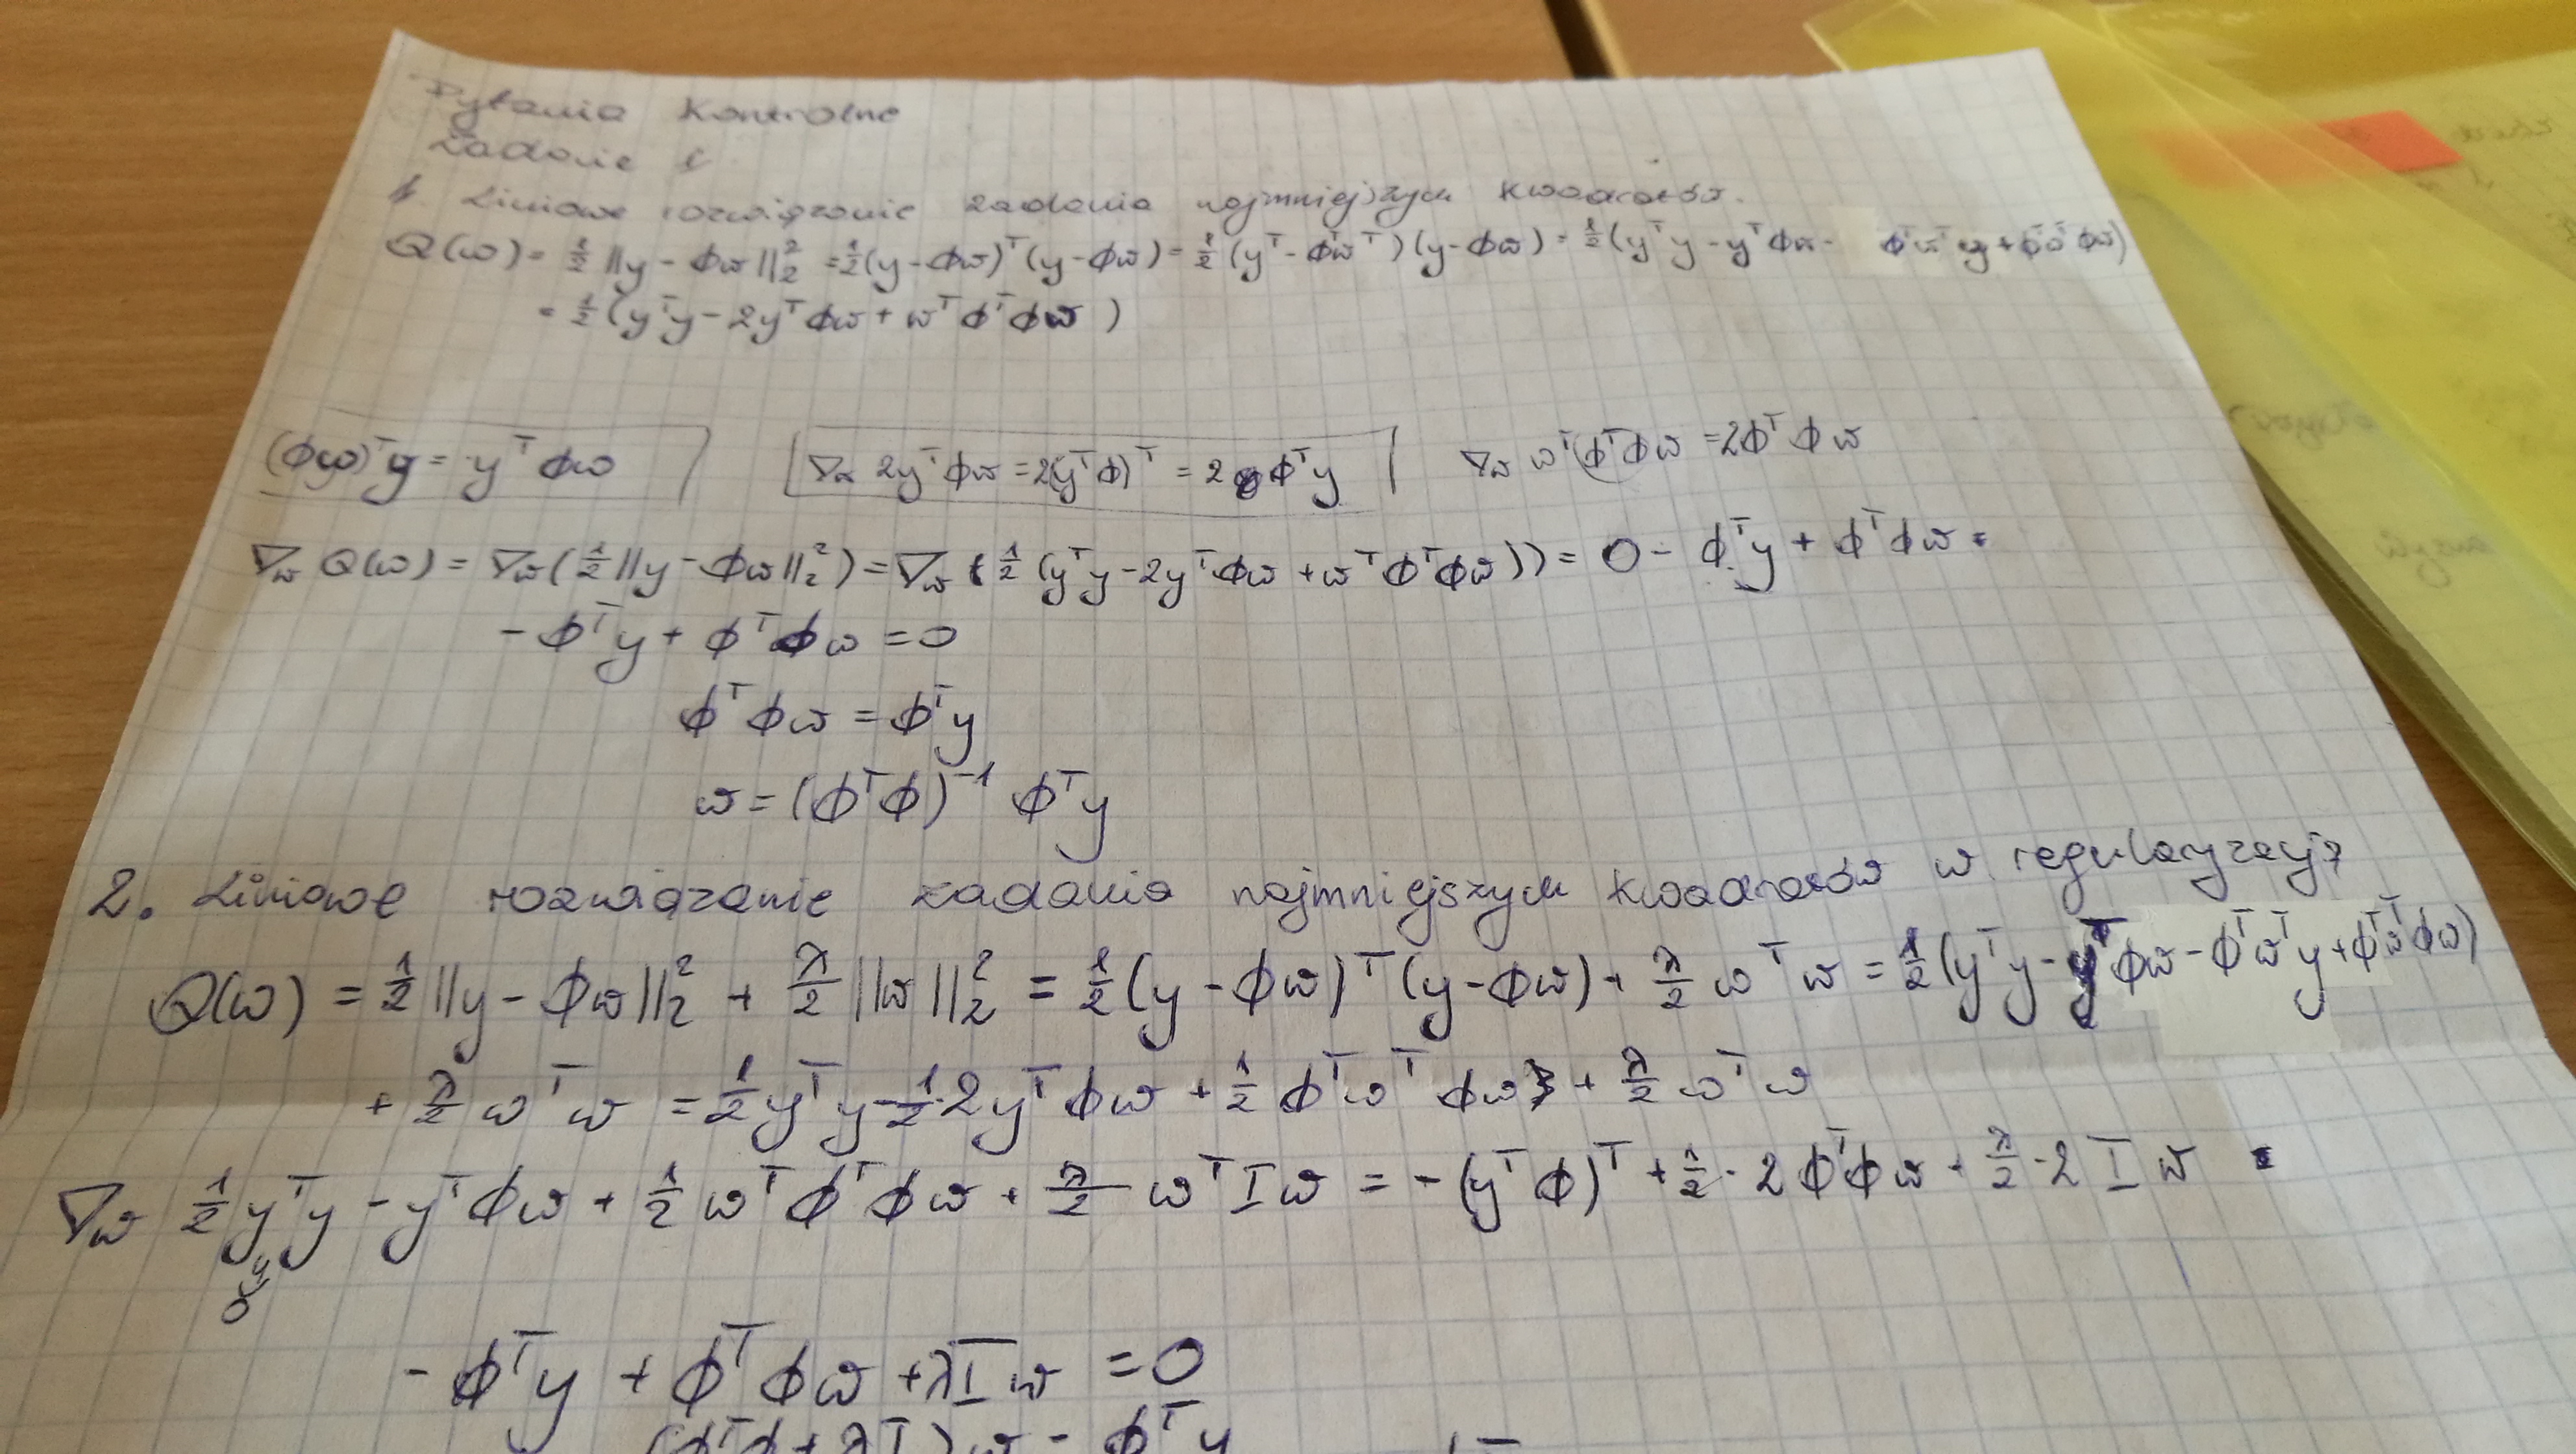 Pytania Kontrolne
Zadanie 1
1. Liniowe rozwiązanie zadania najmniejszych kwadratów.
Q(w) = 1/2 ||y - ϕw||₂² = 1/2(y-ϕw)ᵀ(y-ϕw) = 1/2(yᵀ-ϕᵀwᵀ)(y-ϕw) = 1/2(yᵀy - yᵀϕw - ϕᵀwᵀy + ϕᵀwᵀϕw)
= 1/2(yᵀy - 2yᵀϕw + wᵀϕᵀϕw)
(ϕw)ᵀy = yᵀϕw | ∇w 2yᵀϕw = 2(yᵀϕ)ᵀ = 2ϕᵀy | ∇w wᵀ(ϕᵀϕw = 2ϕᵀϕw
∇w Q(w) = ∇w(1/2||y-ϕw||₂²) = ∇w(1/2(yᵀy - 2yᵀϕw + wᵀϕᵀϕw)) = 0 - ϕᵀy + ϕᵀϕw =
-ϕᵀy + ϕᵀϕw = 0
ϕᵀϕw = ϕᵀy
w = (ϕᵀϕ)⁻¹ ϕᵀy
2. Liniowe rozwiązanie zadania najmniejszych kwadratów w regularyzacją
Q(w) = 1/2||y - ϕw||₂² + λ/2||w||₂² = 1/2(y - ϕw)ᵀ(y-ϕw) + λ/2 wᵀw = 1/2(yᵀy - yᵀϕw - ϕᵀwᵀy + ϕᵀwᵀϕw)
+ λ/2 wᵀw = 1/2 yᵀy - 1/2·2yᵀϕw + 1/2 ϕᵀwᵀϕw + λ/2 wᵀw
∇w 1/2 yᵀy - yᵀϕw + 1/2 wᵀϕᵀϕw + λ/2 wᵀIw = -(yᵀϕ)ᵀ + 1/2·2ϕᵀϕw + λ/2·2Iw =
0
-ϕᵀy + ϕᵀϕw + λIw = 0
(ϕᵀϕ + λI)w = ϕᵀy